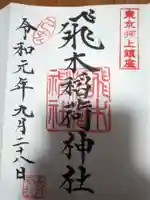 東京押上鎮座
飛木稲荷神社
令和元年九月二十八日